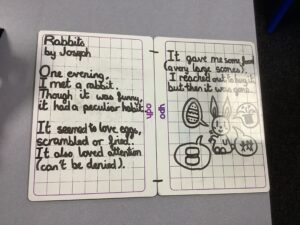 Rabbits
by Joseph
One evening,
I met a rabbit.
Though it was funny,
it had a peculiar habit.
It seemed to love eggs,
scrambled or fried.
It also loved attention
(can't be denied).
It gave me some food
(a very large scone).
I reached out to hug it,
but then it was gone.